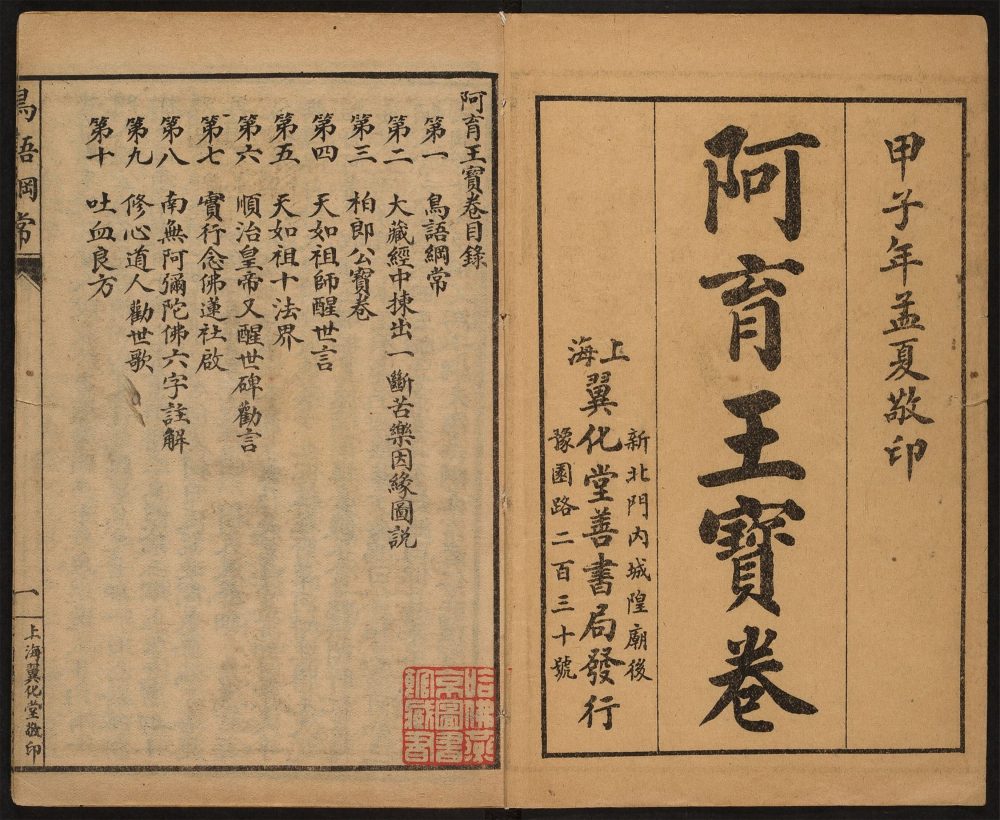 甲子年孟夏敬印
阿育王寶卷
新北門內城隍廟後
上海翼化堂善書局發行
豫園路二百三十號
阿育王寶卷目錄
第一 鳥語綱常
第二 大藏經中揀出一斷苦樂因緣圖説
第三 柏郎公寶卷
第四 天如祖師醒世言
第五 天如祖十法界
第六 順治皇帝又醒世碑勸言
第七 實行念佛蓮社啟
第八 南無阿彌陀佛六字註解
第九 修心道人勸世歌
第十 吐血良方
鳥語綱常
一
上海翼化堂敬印
哈佛燕
京圖書
館藏書